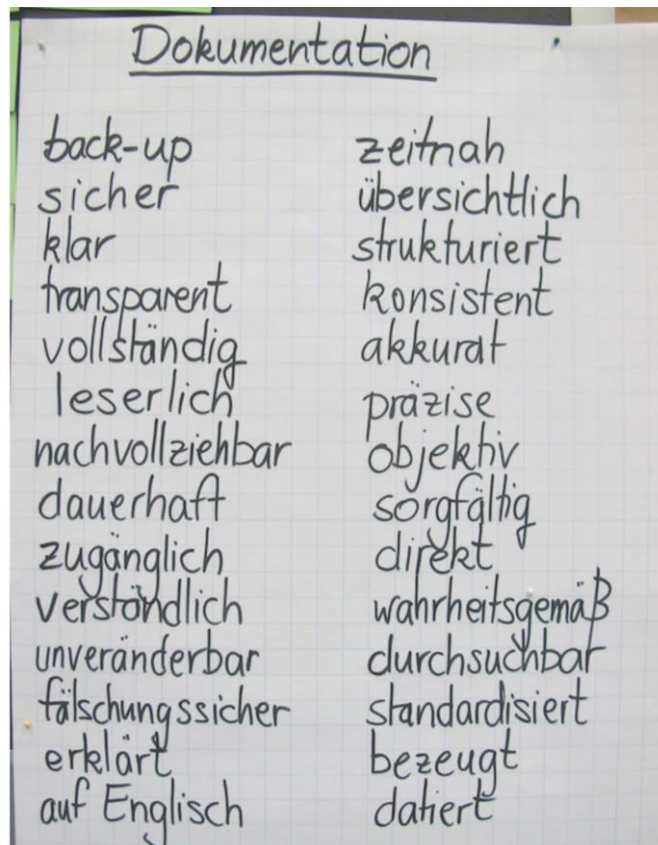 Dokumentation
back-up
sicher
klar
transparent
vollständig
leserlich
nachvollziehbar
dauerhaft
zugänglich
verständlich
unveränderbar
fälschungssicher
erklärt
auf Englisch
zeitnah
übersichtlich
strukturiert
konsistent
akkurat
präzise
objektiv
sorgfältig
direkt
wahrheitsgemäß
durchsuchbar
standardisiert
bezeugt
datiert